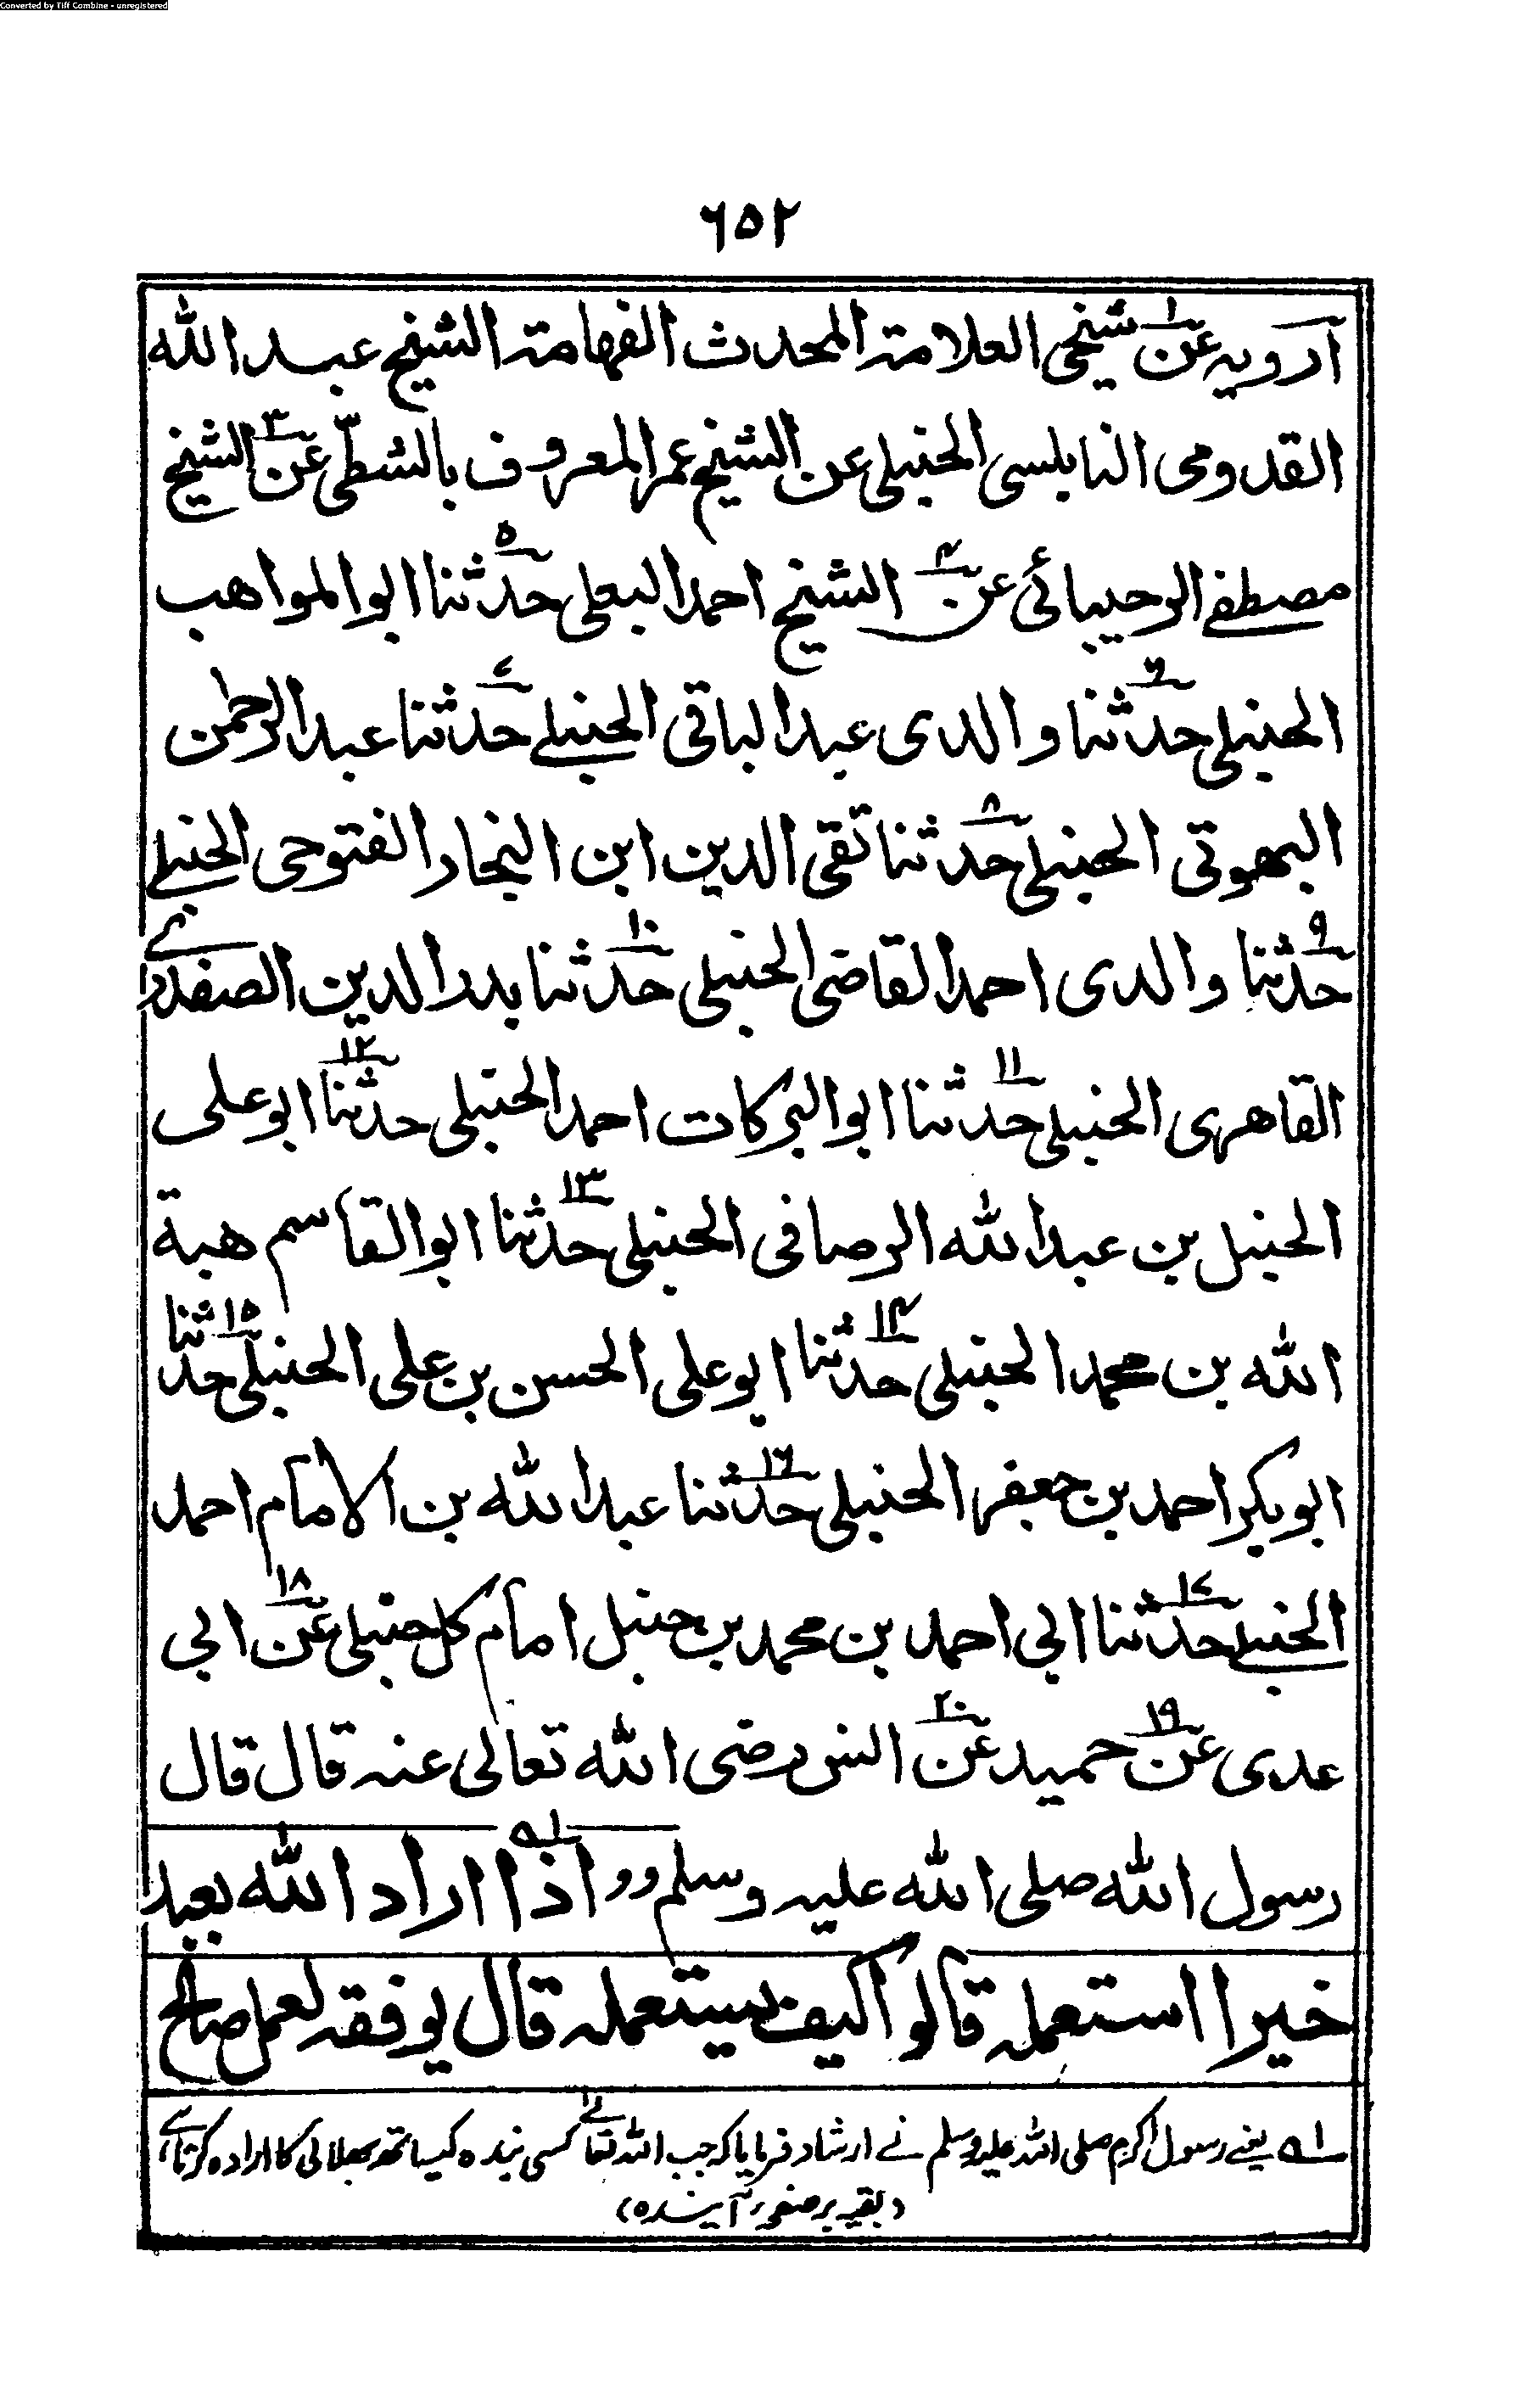 Converted by Tiff Combine - unregistered
٦٥٢
أرويه عن١ شيخى العلامة المحدث الفهامة الشيخ عبد الله
القدومى النابلسى الحنبلى عن الشيخ عمر المعروف بالشطّى عن٣ الشيخ
مصطفے الرحيبائى عن٤ الشيخ احمد البعلى حدثنا٥ ابو المواهب
الحنبلى حدثنا٦ والدى عبد الباقى الحنبلے حدثنا٧ عبد الرحمن
البهوتى الحنبلى حدثنا٨ تقى الدين ابن النجار الفتوحى الحنبلے
حدثنا٩ والدى احمد القاضى الحنبلى حدثنا١٠ بدر الدين الصفدے
القاهرى الحنبلى حدثنا١١ ابو البركات احمد الحنبلى حدثنا١٢ ابو على
الحنبل بن عبد الله الرصافى الحنبلى حدثنا١٣ ابو القاسم هبة
الله بن محمد الحنبلى حدثنا١٤ ابو على الحسن بن على الحنبلى حدثنا١٥
ابو بكر احمد بن جعفر الحنبلى حدثنا١٦ عبد الله بن الامام احمد
الحنبلے حدثنا١٧ ابى احمد بن محمد بن حنبل امام كل حنبلى عن١٨ ابى
عدى عن١٩ حميد عن٢٠ انس رضى الله تعالى عنه قال قال
رسول الله صلى الله عليه وسلم وو اذا١ اراد الله بعبد
خيرا استعمله قالوا كيف يستعمله قال يوفقه لعمل صالح
١ یعنے رسول اکرم صلی اللہ علیہ وسلم نے ارشاد فرمایا کہ جب اللہ تعالےٰ کسی بندہ کیساتھ بھلائی کا ارادہ کرتا ہے
(بقیہ بر صفحہ آیندہ)